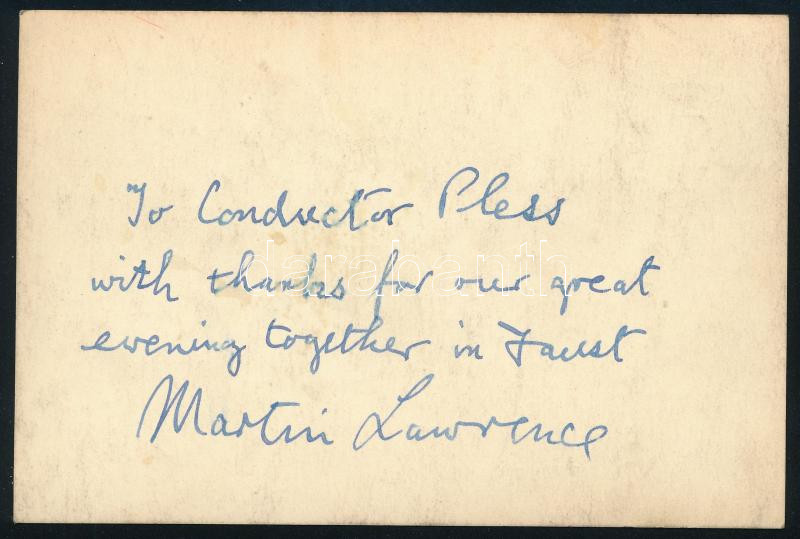 To Conductor Pless
with thanks for our great
evening together in Faust
Martin Lawrence
darabanth